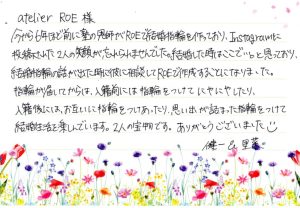 atelier ROE 様
今から6年ほど前に塾の先生がROEで結婚指輪を作っており、Instagramに
投稿された2人の笑顔が忘れられませんでした。結婚した時はここで…と思っており、
結婚指輪の話が出た時に彼に相談してROEで作成することになりました。
指輪が届いてからは、入籍前には指輪をつけてにやにやしたり、
入籍後には、お互いに指輪をつけあったり、思い出が詰まった指輪をつけて
結婚生活を楽しんでいます。2人の宝物です。ありがとうございました
健一 & 里菜